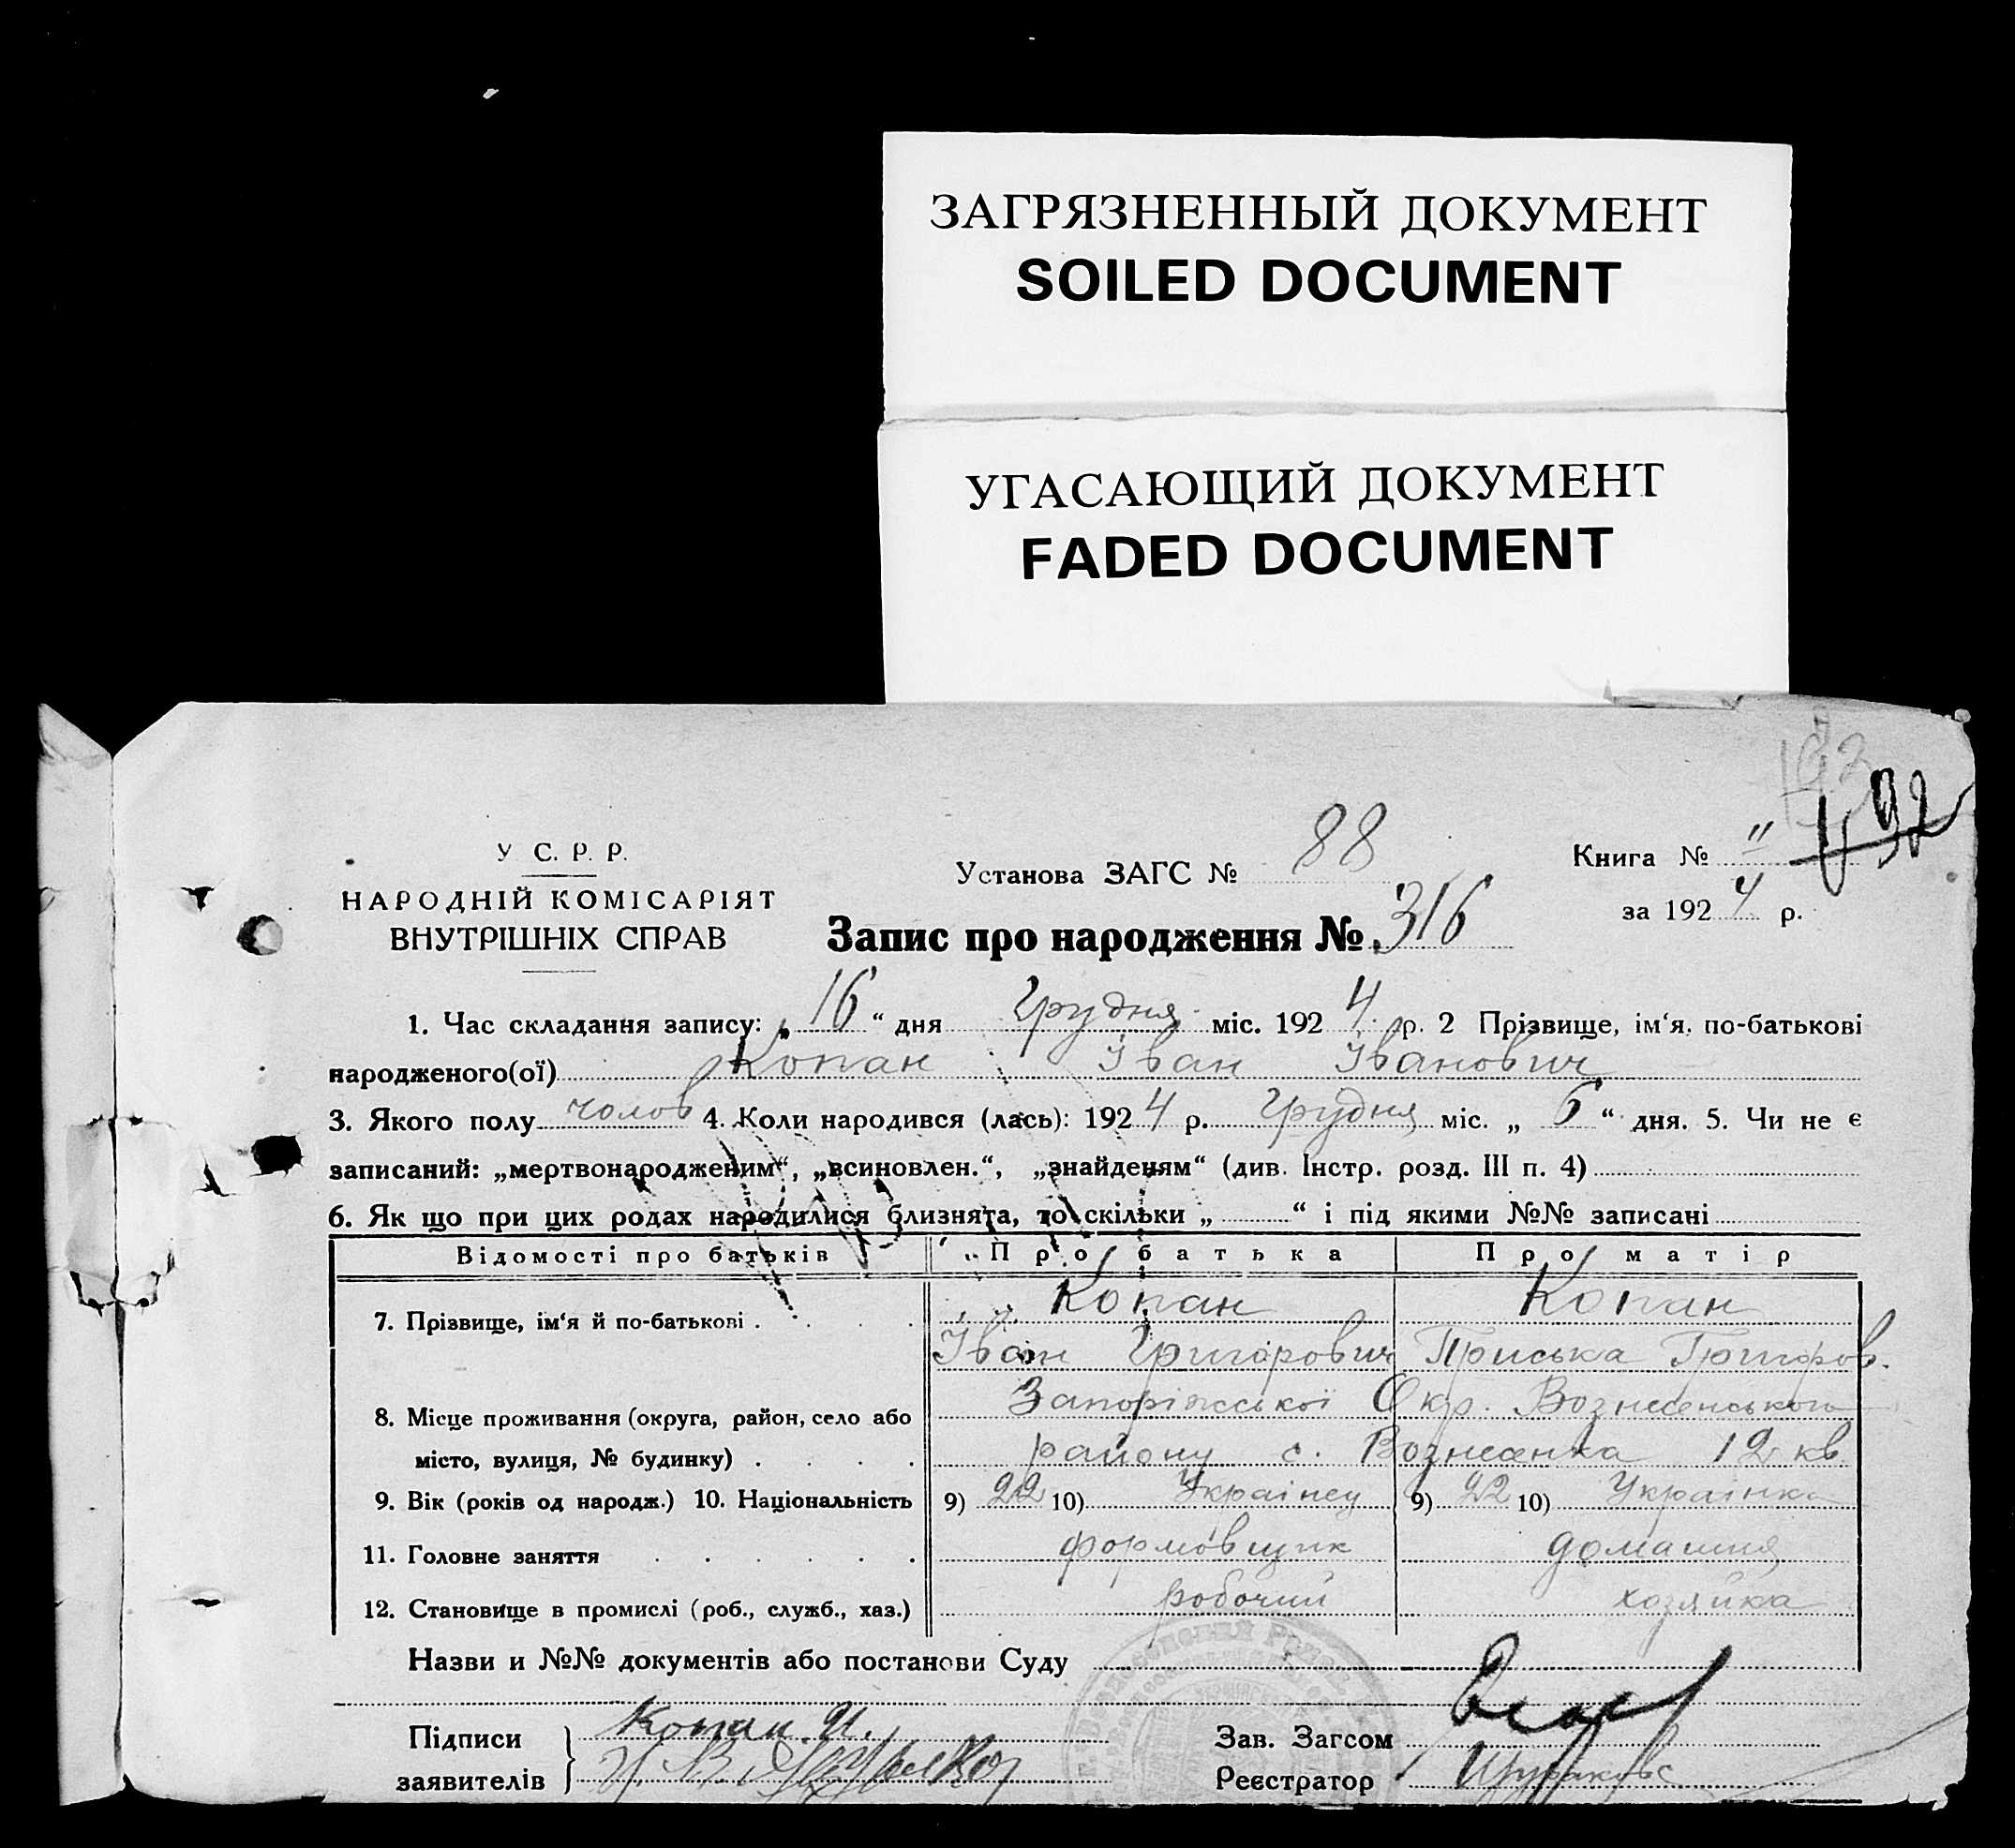 ЗАГРЯЗНЕННЫЙ ДОКУМЕНТ
SOILED DOCUMENT
УГАСАЮЩИЙ ДОКУМЕНТ
FADED DOCUMENT
192
У С. Р. Р. Установа ЗАГС № 88 Книга № "
НАРОДНІЙ КОМІСАРІЯТ за 1924 р.
ВНУТРІШНІХ СПРАВ Запис про народження № 316
1. Час складання запису: „16“ дня Грудня міс. 1924 р. 2 Прізвище, ім‘я, по-батькові
народженого(ої) Копан Іван Іванович
3. Якого полу чолов 4. Коли народився (лась): 1924 р. Грудня міс. „6“ дня. 5. Чи не є
записаний: „мертвонародженим“, „всиновлен.“, „знайденям“ (див. Інстр. розд. III п. 4)
6. Як що при цих родах народилися близнята, то скільки „ “ і під якими №№ записані
Відомості про батьків Про батька Про матір
7. Прізвище, ім‘я й по-батькові . . . . Копан Копан
Іван Григорович Приська Григоров.
8. Місце проживання (округа, район, село або Запоріжської Окр. Вознесенського
місто, вулиця, № будинку) . . . . району с. Вознесенка 12 кв.
9. Вік (років од народж.) 10. Національність 9) 22 10) Українец 9) 22 10) Українка
11. Головне заняття . . . . . . формовщик домашня
12. Становище в промислі (роб., служб., хаз.) робочий хозяйка
Назви и №№ документів або постанови Суду
Підписи Копан И. Зав. Загсом
заявителів Реєстратор